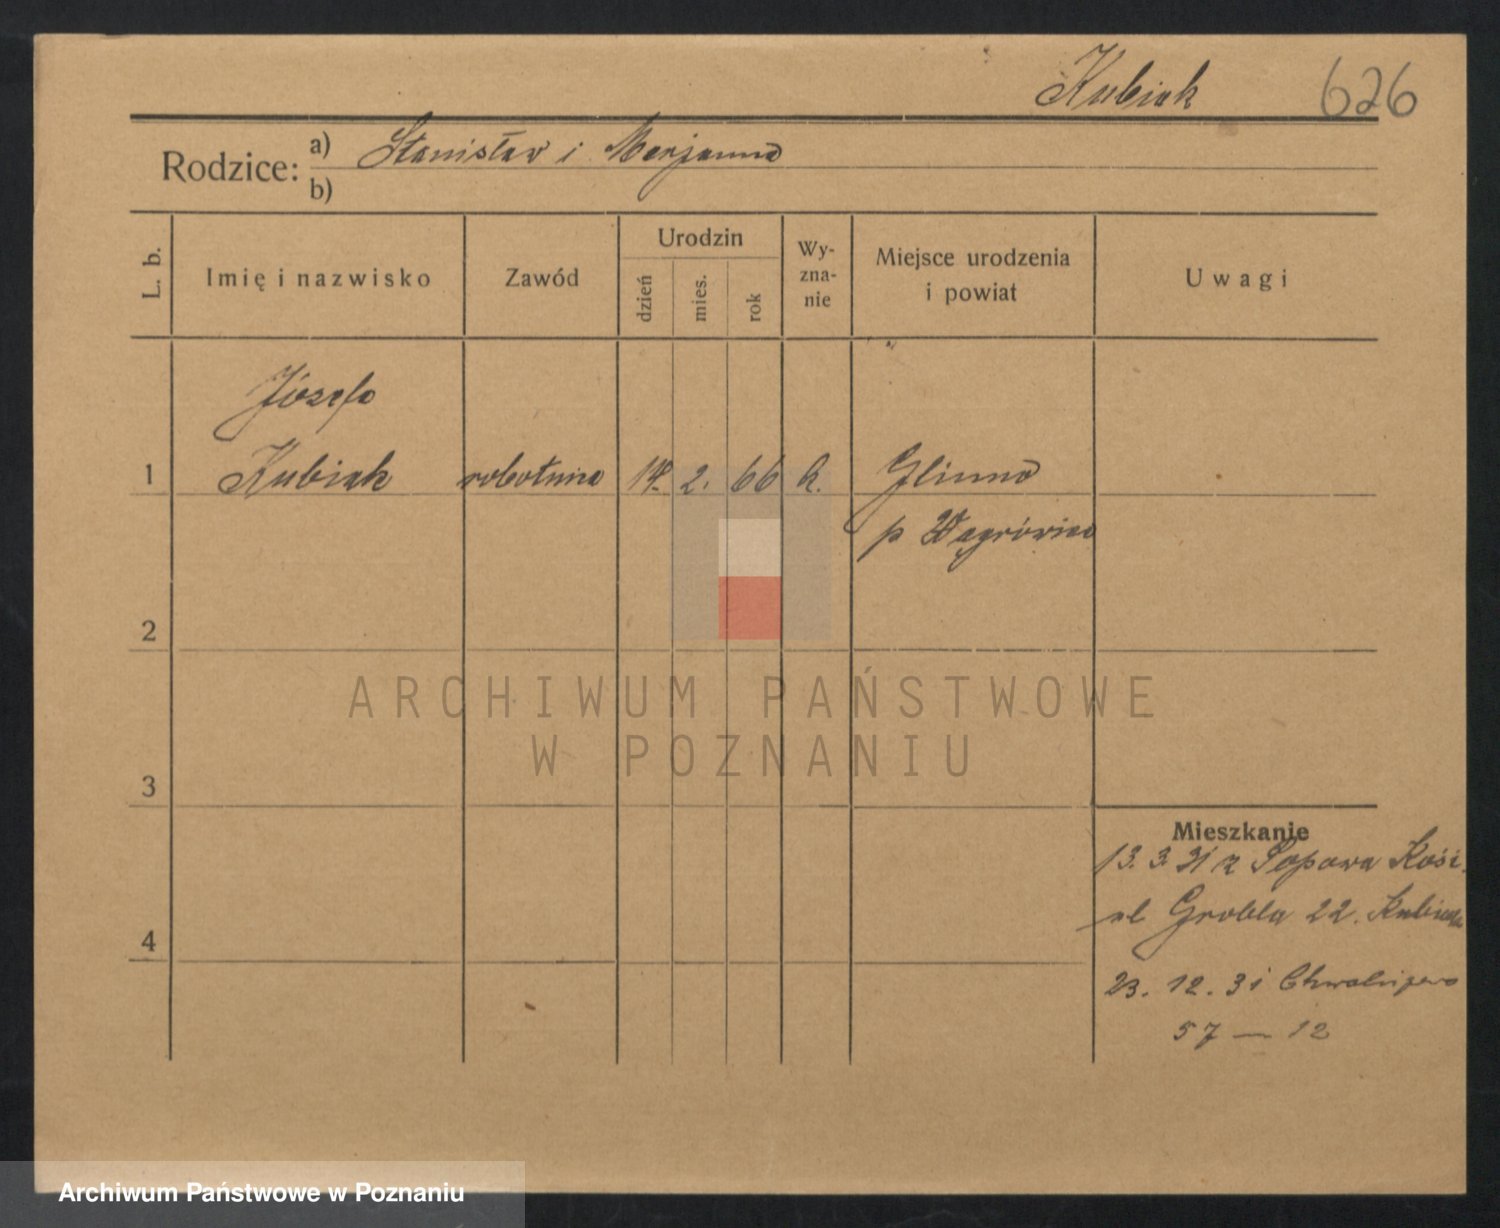 Kubiak 626
Rodzice: a) Stanisław i Marjanna
b)
L. b. Imię i nazwisko Zawód Urodzin dzień mies. rok Wy-zna-nie Miejsce urodzenia i powiat Uwagi
Józefa
1 Kubiak robotnica 14. 2. 66 k. Glinno
p Wągrówiec
2
ARCHIWUM PAŃSTWOWE
W POZNANIU
3
Mieszkanie
13. 3. 31 z Popowa Kość.
ul Grobla 22. Kubiak
4
23. 12. 31 Chwaliszewo
57 — 12
Archiwum Państwowe w Poznaniu